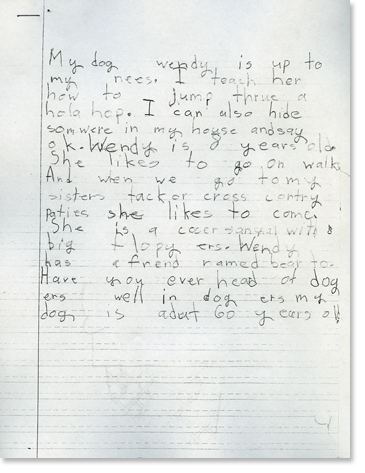 My dog wendy is up to
my nees. I teach her
how to jump thrue a
hola hop. I can also hide
somwere in my house andsay
o k. Wendy is 8 years old.
She likes to go on walk
And when we go to my
sisters tack or cross contry
paties she likes to come.
She is a cocer sanyal with
big flopy ers. Wendy
has a frend named
Have you ever head of dog
ers well in dog ers my
dog is adut 60 years old